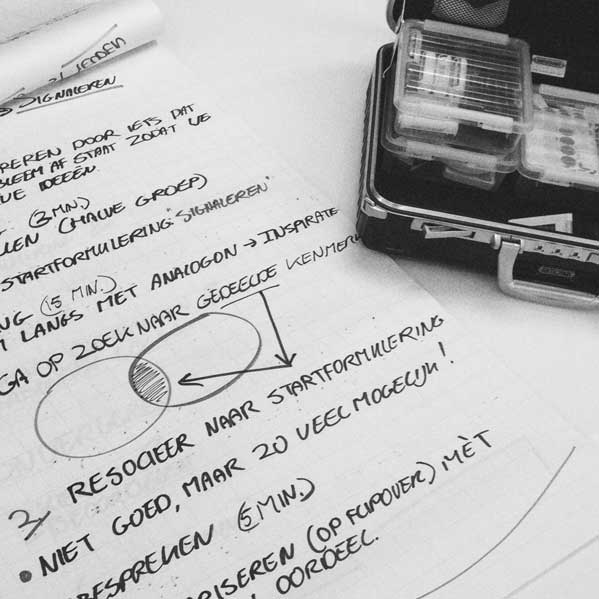 SIGNALEREN
DOOR IETS DAT
AF STAAT ZODAT WE
IDEEËN.
(3 MIN.)
(HALVE GROEP)
STARTFORMULERING: "SIGNALEREN"
(15 MIN.)
LANGS MET ANALOGON → INSPIRATIE
GA OP ZOEK NAAR GEDEELDE KENMERKEN
3, RESOCIEER NAAR STARTFORMULERING
• NIET GOED, MAAR ZO VEEL MOGELIJK!
BESPREKEN (5 MIN.)
(OP FLIPOVER) MÈT
OORDEEL.